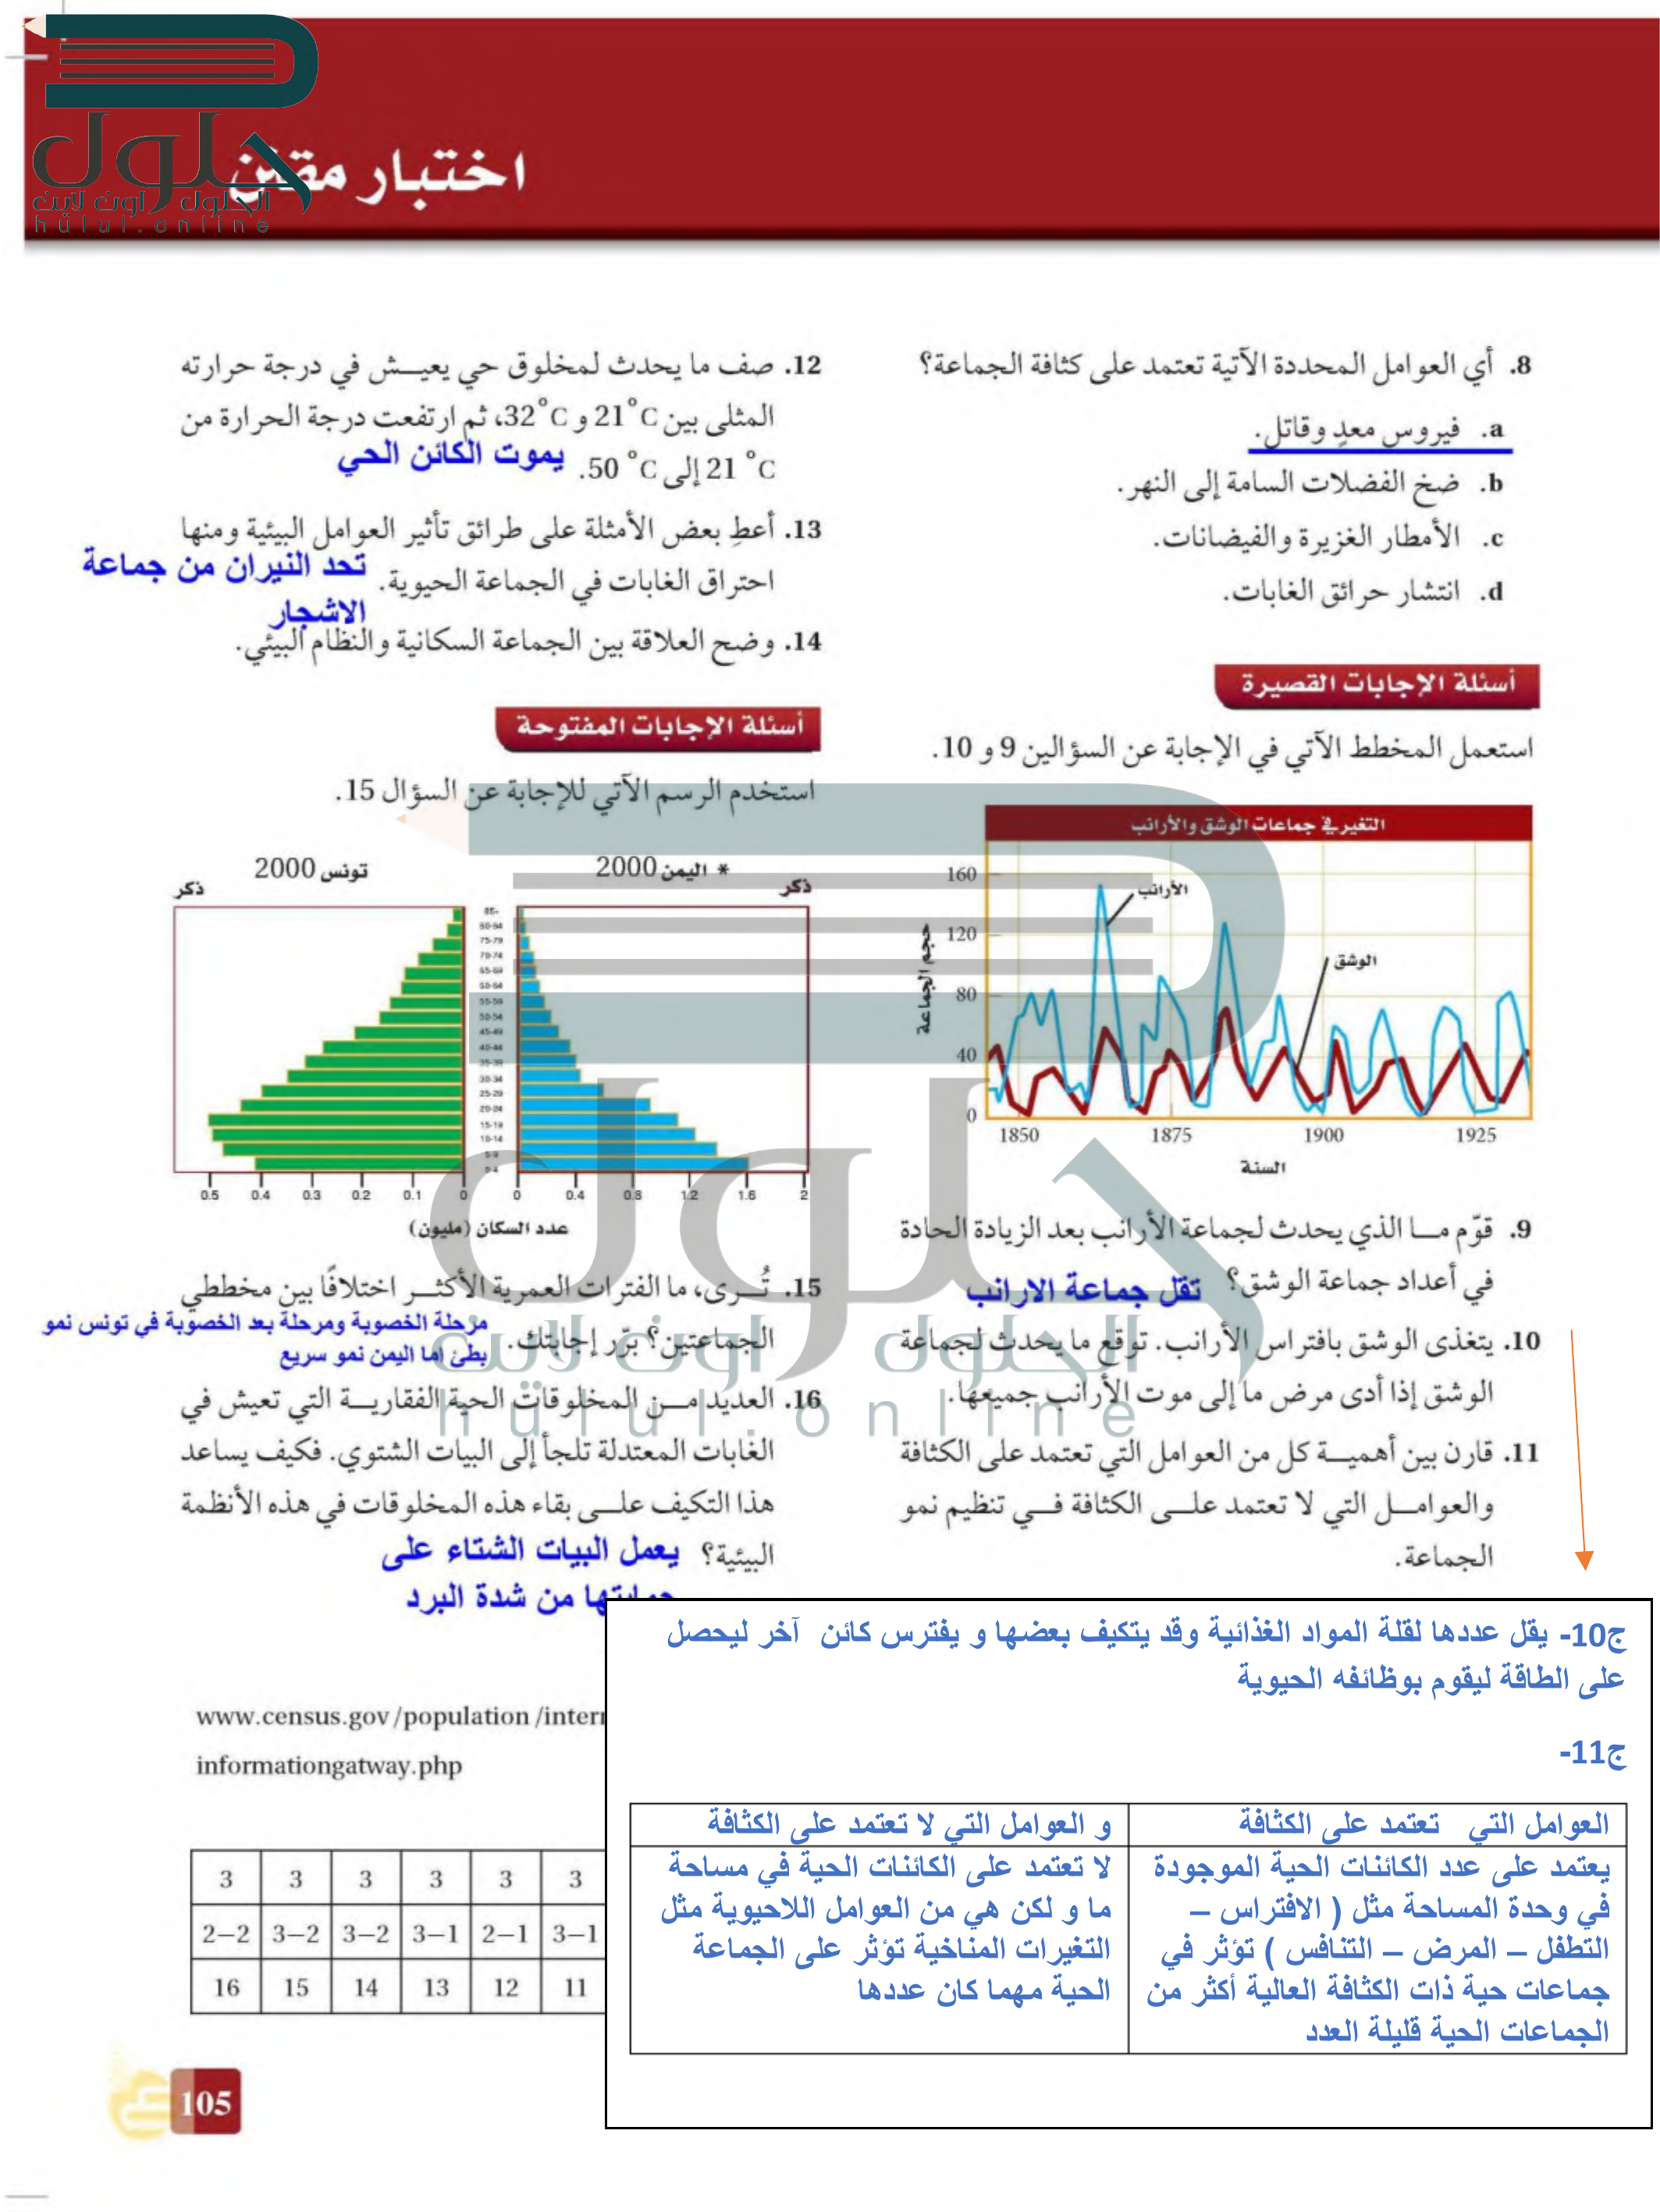 حلول
الحلول اون لاين
hulul.online
اختبار مقنن
8. أي العوامل المحددة الآتية تعتمد على كثافة الجماعة؟
a. فيروس معدٍ وقاتل.
b. ضخ الفضلات السامة إلى النهر.
c. الأمطار الغزيرة والفيضانات.
d. انتشار حرائق الغابات.
أسئلة الإجابات القصيرة
استعمل المخطط الآتي في الإجابة عن السؤالين 9 و 10.
التغير في جماعات الوشق والأرانب
حجم الجماعة
160
120
80
40
0
الأرانب
الوشق
1850 1875 1900 1925
السنة
9. قوّم مـا الذي يحدث لجماعة الأرانب بعد الزيادة الحادة
في أعداد جماعة الوشق؟ تقل جماعة الارانب
10. يتغذى الوشق بافتراس الأرانب. توقع ما يحدث لجماعة
الوشق إذا أدى مرض ما إلى موت الأرانب جميعها.
11. قارن بين أهميـة كل من العوامل التي تعتمد على الكثافة
والعوامـل التي لا تعتمد علـى الكثافة فـي تنظيم نمو
الجماعة.
12. صف ما يحدث لمخلوق حي يعيـش في درجة حرارته
المثلى بين 21°C و 32°C، ثم ارتفعت درجة الحرارة من
21 °C إلى 50 °C. يموت الكائن الحي
13. أعطِ بعض الأمثلة على طرائق تأثير العوامل البيئية ومنها
احتراق الغابات في الجماعة الحيوية. تحد النيران من جماعة
الاشجار
14. وضح العلاقة بين الجماعة السكانية والنظام البيئي.
أسئلة الإجابات المفتوحة
استخدم الرسم الآتي للإجابة عن السؤال 15.
* اليمن 2000
تونس 2000
ذكر
ذكر
75-79
70-74
65-69
55-59
50-54
45-49
40-44
35-39
30-34
25-29
20-24
15-19
10-14
5-9
0-4
0.5 0.4 0.3 0.2 0.1 0
0 0.4 0.8 1.2 1.6 2
عدد السكان (مليون)
15. تُـرى، ما الفترات العمرية الأكثـر اختلافًا بين مخططي
الجماعتين؟ برّر إجابتك. مرحلة الخصوبة ومرحلة بعد الخصوبة في تونس نمو
بطئ اما اليمن نمو سريع
16. العديد مـن المخلوقات الحية الفقاريـة التي تعيش في
الغابات المعتدلة تلجأ إلى البيات الشتوي. فكيف يساعد
هذا التكيف علـى بقاء هذه المخلوقات في هذه الأنظمة
البيئية؟ يعمل البيات الشتاء على
حمايتها من شدة البرد
حلول
الحلول اون لاين
hulul.online
ج10- يقل عددها لقلة المواد الغذائية وقد يتكيف بعضها و يفترس كائن آخر ليحصل
على الطاقة ليقوم بوظائفه الحيوية
ج11-
العوامل التي تعتمد على الكثافة
و العوامل التي لا تعتمد على الكثافة
يعتمد على عدد الكائنات الحية الموجودة
في وحدة المساحة مثل ( الافتراس –
التطفل – المرض – التنافس ) تؤثر في
جماعات حية ذات الكثافة العالية أكثر من
الجماعات الحية قليلة العدد
لا تعتمد على الكائنات الحية في مساحة
ما و لكن هي من العوامل اللاحيوية مثل
التغيرات المناخية تؤثر على الجماعة
الحية مهما كان عددها
www.census.gov/population/inter
informationgatway.php
3 3 3 3 3 3
2–2 3–2 3–2 3–1 2–1 3–1
16 15 14 13 12 11
105